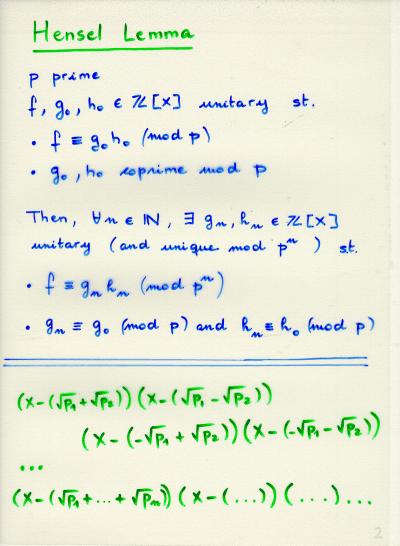 Hensel Lemma
p prime
f, g₀, h₀ ∈ ℤ[x] unitary st.
• f ≡ g₀h₀ (mod p)
• g₀, h₀ coprime mod p
Then, ∀n ∈ ℕ, ∃ gₙ, hₙ ∈ ℤ[x]
unitary (and unique mod pⁿ) st.
• f ≡ gₙhₙ (mod pⁿ)
• gₙ ≡ g₀ (mod p) and hₙ ≡ h₀ (mod p)
(x-(√p₁+√p₂))(x-(√p₁-√p₂))
(x-(-√p₁+√p₂))(x-(-√p₁-√p₂))
...
(x-(√p₁+...+√pₙ))(x-(...))(...)...
2